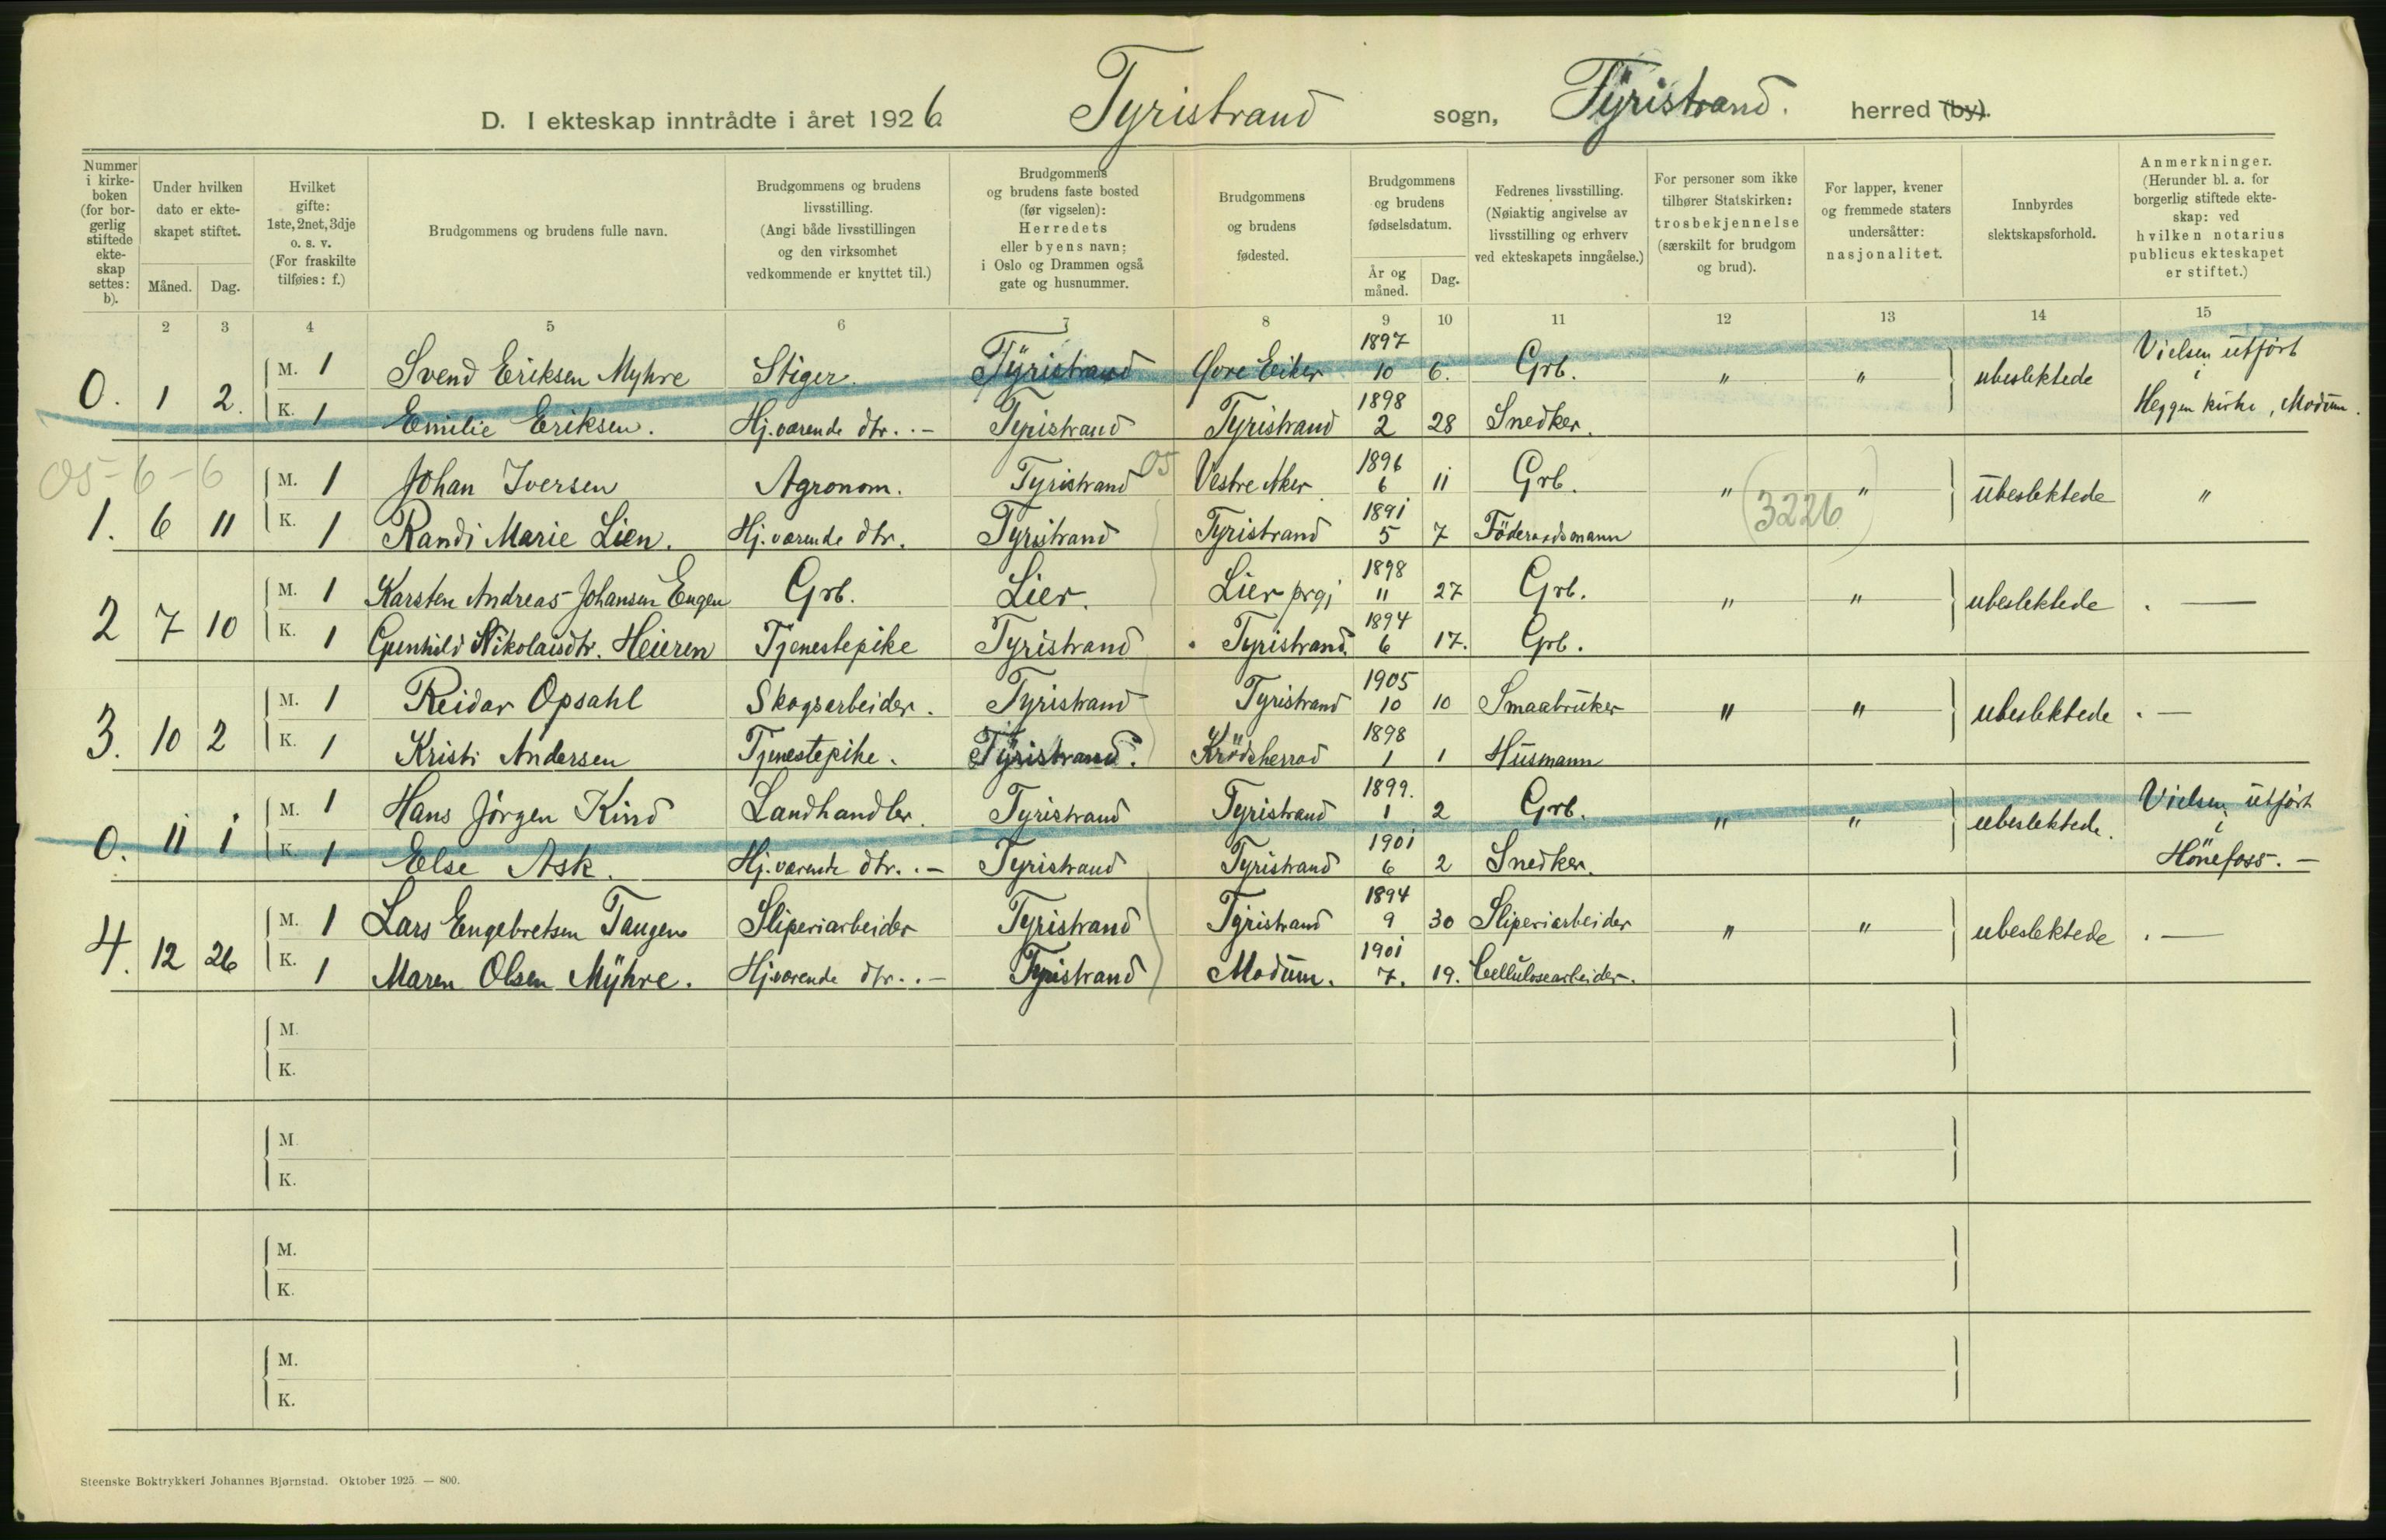 D. I ekteskap inntrådte i året 1926 Tyristrand sogn, Tyristrand. herred (by).
Nummer i kirke-boken (for bor-gerlig stiftede ekte-skap settes: b).
Under hvilken dato er ekte-skapet stiftet.
Måned. Dag.
Hvilket gifte: 1ste, 2net, 3dje o. s. v. (For fraskilte tilføies: f.)
Brudgommens og brudens fulle navn.
Brudgommens og brudens livsstilling. (Angi både livsstillingen og den virksomhet vedkommende er knyttet til.)
Brudgommens og brudens faste bosted (før vigselen): Herredets eller byens navn; i Oslo og Drammen også gate og husnummer.
Brudgommens og brudens fødested.
Brudgommens og brudens fødselsdatum.
År og måned. Dag.
Fedrenes livsstilling. (Nøiaktig angivelse av livsstilling og erhverv ved ekteskapets inngåelse.)
For personer som ikke tilhører Statskirken: trosbekjennelse (særskilt for brudgom og brud).
For lapper, kvener og fremmede staters undersåtter: nasjonalitet.
Innbyrdes slektskapsforhold.
Anmerkninger. (Herunder bl. a. for borgerlig stiftede ekte-skap: ved hvilken notarius publicus ekteskapet er stiftet.)
2 3 4 5 6 7 8 9 10 11 12 13 14 15
0. 1 2. M. 1 Svend Eriksen Myhre Stiger. Tyristrand Øvre Eiker 1897 10 6. Grb. " " ubeslektede Vielsen utført i Heggen kirke, Modum.
K. 1 Emilie Eriksen. Hj. værende dtr. .- Tyristrand Tyristrand 1898 2 28 Snedker.
05-6-6
1. 6 11 M. 1 Johan Iversen Agronom. Tyristrand 05 Vestre Aker 1896 6 11 Grb. " " ubeslektede "
(3226)
K. 1 Randi Marie Lien. Hj. værende dtr. Tyristrand Tyristrand 1891 5 7 Föderaadsmann
2 7 10 M. 1 Karsten Andreas Johansen Engen Grb. Lier. Lier prgj 1898 11 27 Grb. " " ubeslektede . —
K. 1 Gunhild Nikolaisdtr. Heieren Tjenestepike Tyristrand Tyristrand. 1894 6 17. Grb.
3. 10 2 M. 1 Reidar Opsahl Skogsarbeider. Tyristrand Tyristrand 1905 10 10 Smaabruker " " ubeslektede . —
K. 1 Kristi Andersen Tjenestepike. Tyristrand. Krödsherrad 1898 1 1 Husmann
0. 11 1 M. 1 Hans Jörgen Kind Landhandler. Tyristrand Tyristrand 1899. 1 2 Grb. " " ubeslektede. Vielsen utført i Hönefoss. —
K. 1 Else Ask. Hj. værende dtr. .- Tyristrand Tyristrand 1901 6 2 Snedker.
4. 12 26 M. 1 Lars Engebretsen Tangen Sliperiarbeider Tyristrand Tyristrand 1894 9 30 Sliperiarbeider " " ubeslektede . —
K. 1 Maren Olsen Myhre. Hj. værende dtr. .- Tyristrand Modum. 1901 7. 19. Cellulosearbeider.
M.
K.
M.
K.
M.
K.
M.
K.
Steenske Boktrykkeri Johannes Bjørnstad. Oktober 1925. — 800.